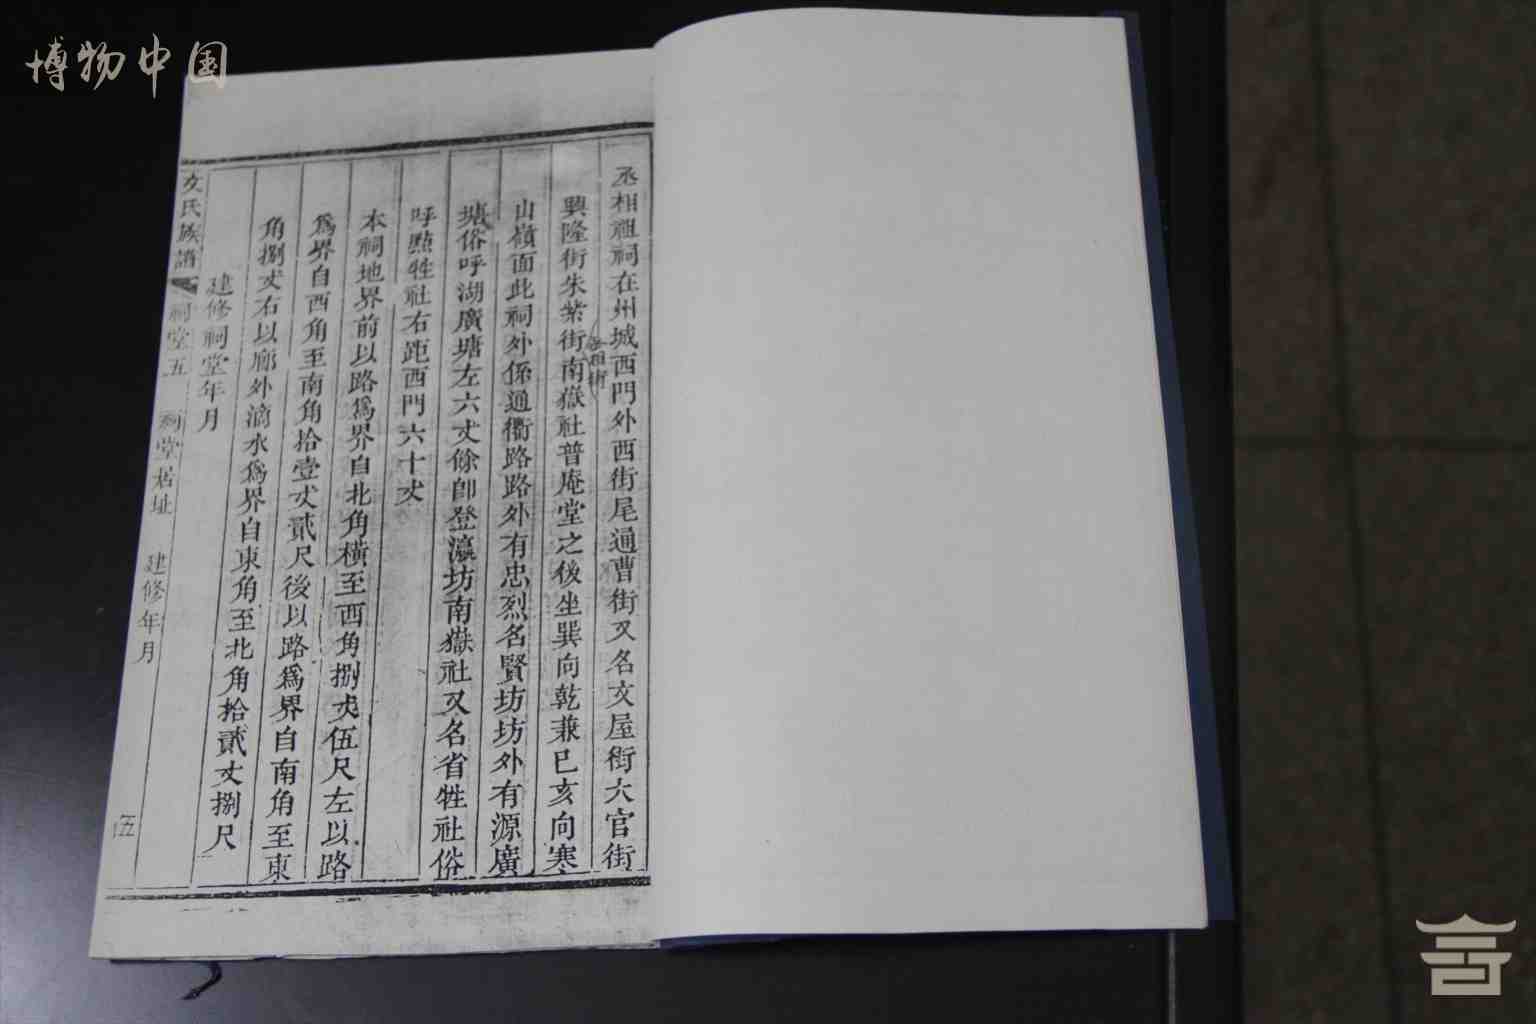 博物中国
丞相祖祠在州城西門外西街尾通曹街又名文屋街大官街
興隆街朱紫街南嶽社普庵堂之後坐巽向乾兼巳亥向寒
山嶺面此祠外係通衢路路外有忠烈名賢坊坊外有源廣
塘俗呼湖廣塘左六丈餘卽登瀛坊南嶽社又名省牲社俗
呼點牲社右距西門六十丈
本祠地界前以路爲界自北角橫至西角捌丈伍尺左以路
爲界自西角至南角拾壹丈貳尺後以路爲界自南角至東
角捌丈右以廊外滴水爲界自東角至北角拾貳丈捌尺
建修祠堂年月
文氏族譜 祠堂五 祠堂居址 建修年月 五